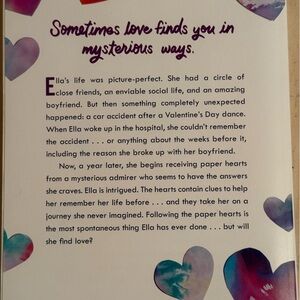 Sometimes love finds you in
mysterious ways.
Ella's life was picture-perfect. She had a circle of
close friends, an enviable social life, and an amazing
boyfriend. But then something completely unexpected
happened: a car accident after a Valentine's Day dance.
When Ella woke up in the hospital, she couldn't remember
the accident . . . or anything about the weeks before it,
including the reason she broke up with her boyfriend.
Now, a year later, she begins receiving paper hearts
from a mysterious admirer who seems to have the answers
she craves. Ella is intrigued. The hearts contain clues to help
her remember her life before . . . and they take her on a
journey she never imagined. Following the paper hearts is
the most spontaneous thing Ella has ever done . . . but will
she find love?